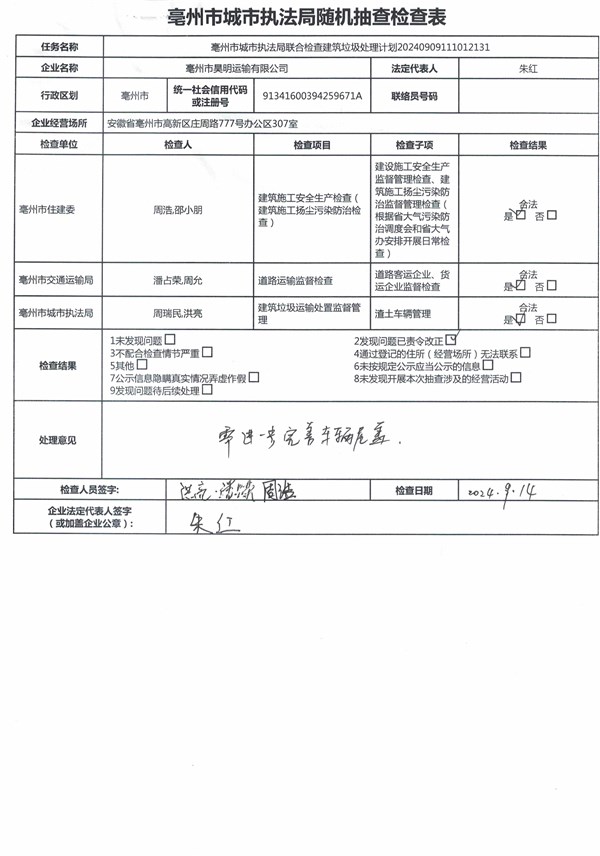 亳州市城市执法局随机抽查检查表
任务名称 亳州市城市执法局联合检查建筑垃圾处理计划20240909111012131
企业名称 亳州市昊明运输有限公司 法定代表人 朱红
行政区划 亳州市 统一社会信用代码或注册号 91341600394259671A 联络员号码
企业经营场所 安徽省亳州市高新区庄周路777号办公区307室
检查单位 检查人 检查项目 检查子项 检查结果
亳州市住建委 周浩,邵小朋 建筑施工安全生产检查（建筑施工扬尘污染防治检查） 建设施工安全生产监督管理检查、建筑施工扬尘污染防治监督管理检查（根据省大气污染防治调度会和省大气办安排开展日常检查） 合法 是☑ 否☐
亳州市交通运输局 潘占荣,周允 道路运输监督检查 道路客运企业、货运企业监督检查 合法 是☑ 否☐
亳州市城市执法局 周瑞民,洪亮 建筑垃圾运输处置监督管理 渣土车辆管理 合法 是☑ 否☐
检查结果
1未发现问题☐ 2发现问题已责令改正☑
3不配合检查情节严重☐ 4通过登记的住所（经营场所）无法联系☐
5其他☐ 6未按规定公示应当公示的信息☐
7公示信息隐瞒真实情况弄虚作假☐ 8未发现开展本次抽查涉及的经营活动☐
9发现问题待后续处理☐
处理意见 需进一步完善车辆尾盖.
检查人员签字: 洪亮 周浩 检查日期 2024.9.14
企业法定代表人签字（或加盖企业公章）: 朱红